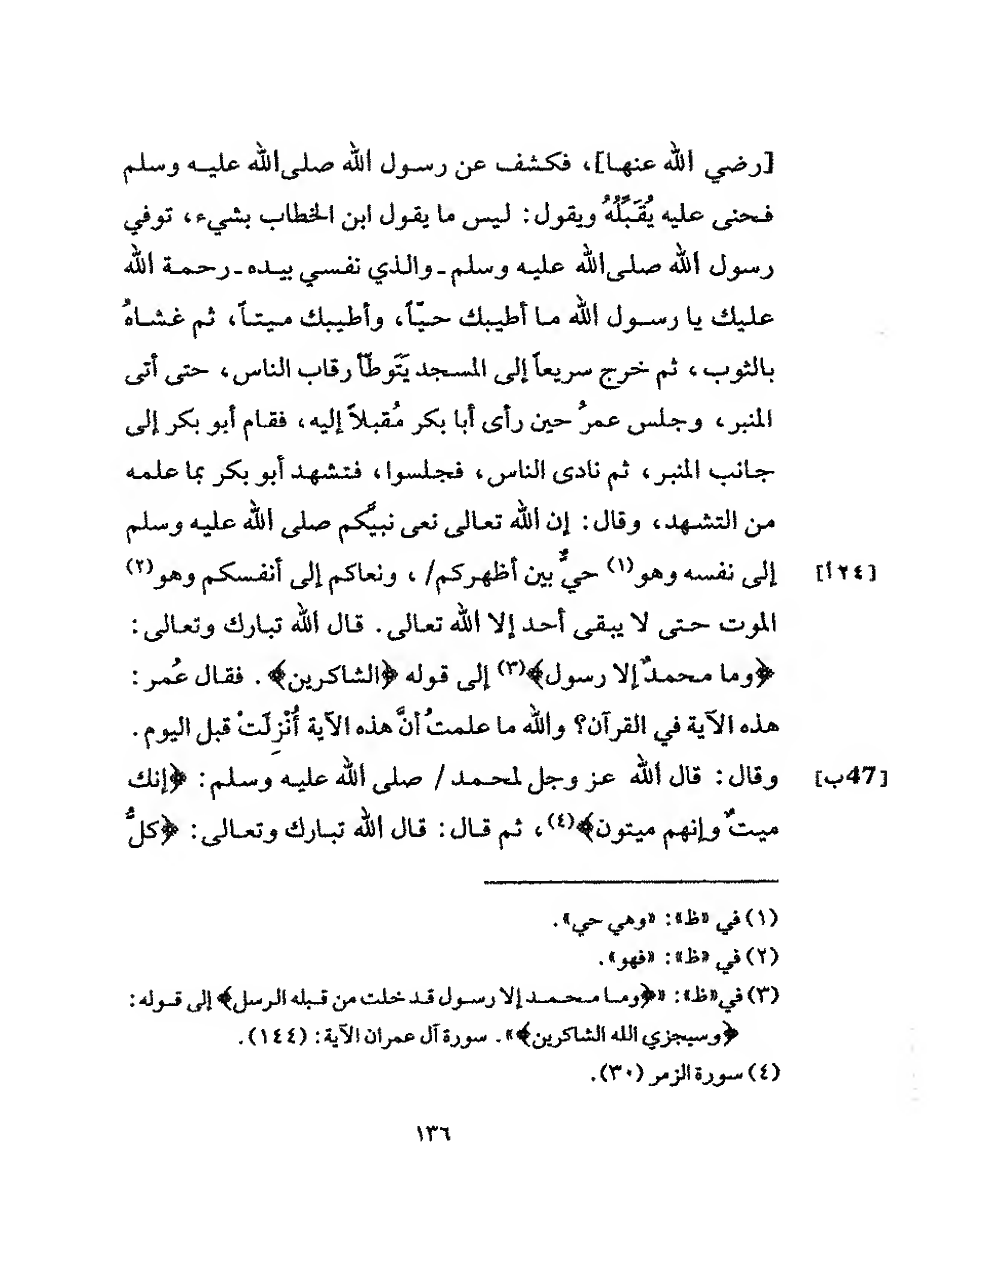 [رضي الله عنها]، فكشف عن رسول الله صلى الله عليه وسلم
فحنى عليه يُقَبِّلُهُ ويقول: ليس ما يقول ابن الخطاب بشيء، توفي
رسول الله صلى الله عليه وسلم ـ والذي نفسي بيده ـ رحمة الله
عليك يا رسول الله ما أطيبك حيّاً، وأطيبك ميتاً، ثم غشاهُ
بالثوب، ثم خرج سريعاً إلى المسجد يَتَوطّأ رقاب الناس، حتى أتى
المنبر، وجلس عمرُ حين رأى أبا بكر مُقبلاً إليه، فقام أبو بكر إلى
جانب المنبر، ثم نادى الناس، فجلسوا، فتشهد أبو بكر بما علمه
من التشهد، وقال: إن الله تعالى نعى نبيَّكم صلى الله عليه وسلم
[٢٤أ] إلى نفسه وهو(١) حيٌّ بين أظهركم/، ونعاكم إلى أنفسكم وهو(٢)
الموت حتى لا يبقى أحد إلا الله تعالى. قال الله تبارك وتعالى:
﴿وما محمدٌ إلا رسول﴾(٣) إلى قوله ﴿الشاكرين﴾. فقال عُمر:
هذه الآية في القرآن؟ والله ما علمتُ أنَّ هذه الآية أُنْزِلَتْ قبل اليوم.
[47ب] وقال: قال الله عز وجل لمحمد/ صلى الله عليه وسلم: ﴿إنك
ميتٌ وإنهم ميتون﴾(٤)، ثم قال: قال الله تبارك وتعالى: ﴿كلُّ
(١) في «ظ»: «وهي حي».
(٢) في «ظ»: «فهو».
(٣) في «ظ»: «﴿وما محمد إلا رسول قد خلت من قبله الرسل﴾ إلى قوله:
﴿وسيجزي الله الشاكرين﴾». سورة آل عمران الآية: (١٤٤).
(٤) سورة الزمر (٣٠).
١٣٦